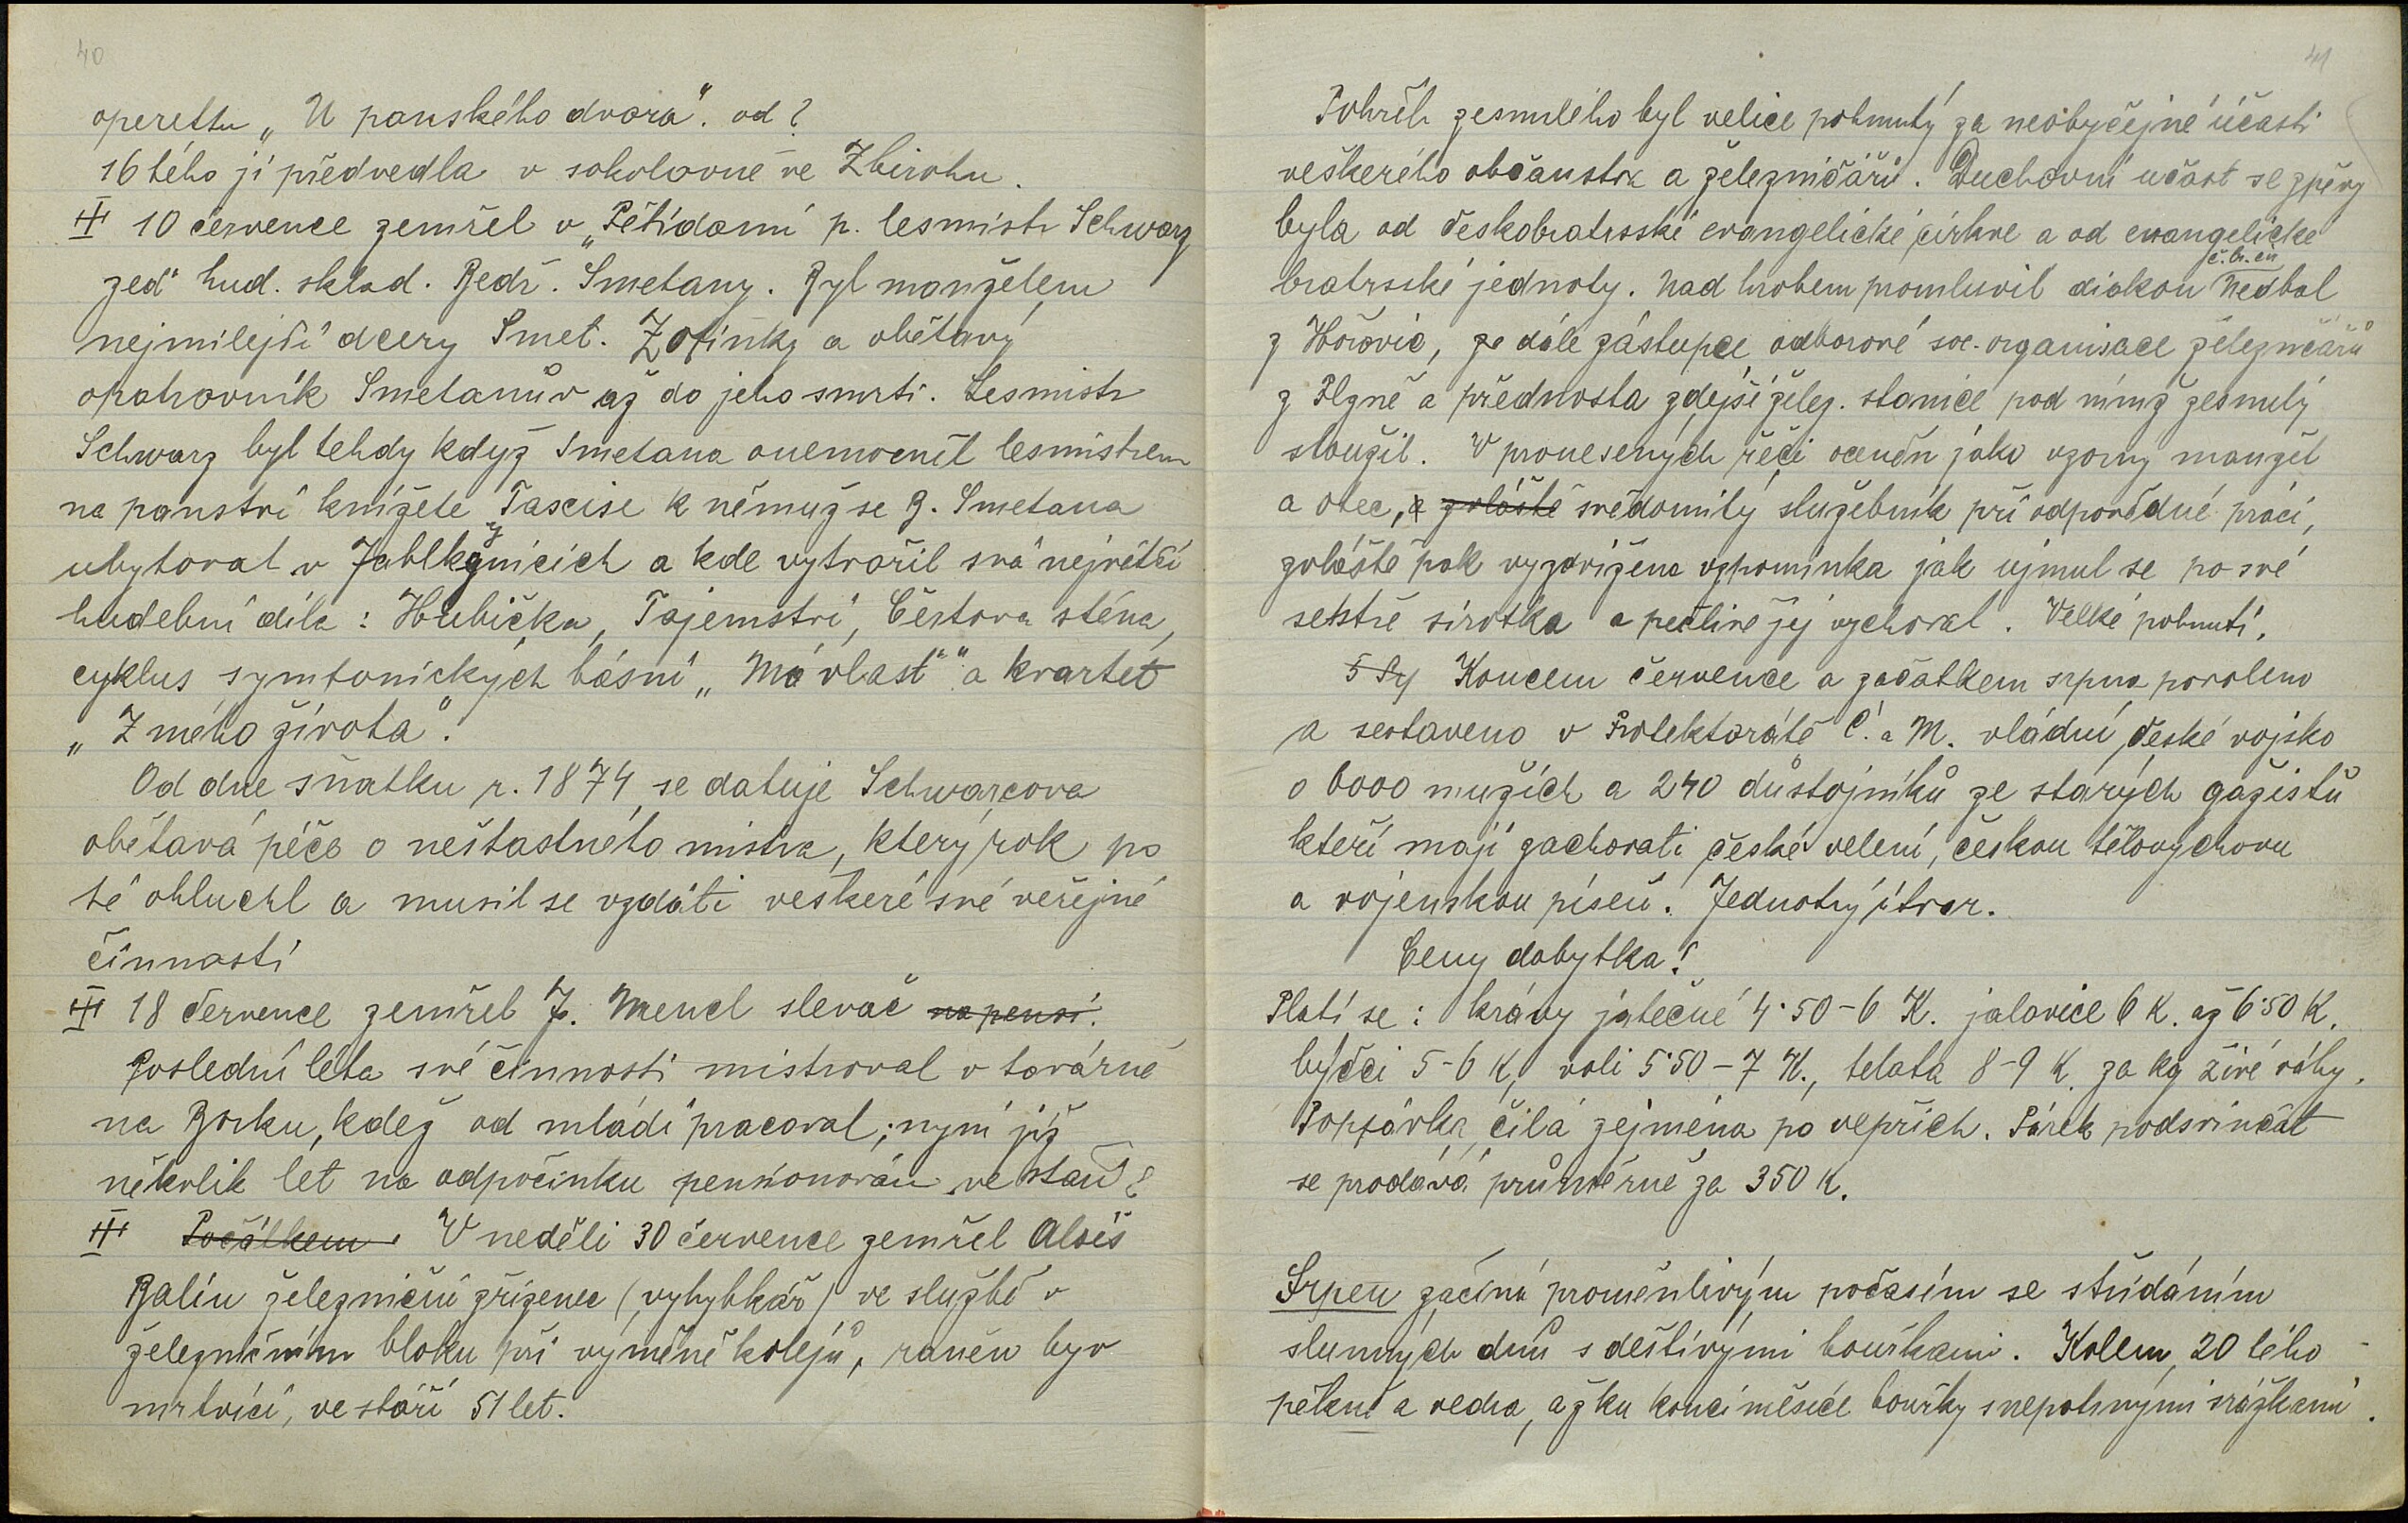 40
operettu „U panského dvora". od?
16 tého ji předvedla v sokolovně ve Zbirohu.
10 července zemřel v „Pětidomí p. lesmistr Schwarz
zeď hud. sklad. Bedř. Smetany. Byl manželem
nejmilejší dcery Smet. Žofinky a obětavý
opatrovník Smetanův až do jeho smrti. Lesmistr
Schwarz byl tehdy když Smetana onemocněl lesmistrem
na panství knížete Taxise k němuž se B. Smetana
ubytoval v Jabkynicích a kde vytvořil svá největší
hudební díla: Hubička, Tajemství, Čertova stěna,
cyklus symfonických básní „Má vlast" a kvartet
„Z mého života".
Od dne sňatku r. 1874 se datuje Schwarcova
obětavá péče o nešťastného mistra, který rok po
té ohluchl a musil se vzdáti veškeré své veřejné
činnosti
18 července zemřel J. Mencl slevač na pensi.
Poslední léta své činnosti mistroval v továrně
na Borku, kdež od mládí pracoval; nyní již
několik let na odpočinku pensionován ve stáří ?
Počátkem. V neděli 30 července zemřel Alois
Balín železniční zřízenec (vyhybkář) ve službě v
železničním bloku při výměně kolejů, raněn byv
mrtvicí, ve stáří 51 let.
41
Pohřeb zesnulého byl velice pohnutý za neobyčejné účasti
veškerého občanstva a železničářů. Duchovní účast se zpěvy
byla od českobratrské evangelické církve a od evangelické
č. br. ev
bratrské jednoty. Nad hrobem promluvil diakon Nedbal
z Hořovic, ze dále zástupce odborové soc. organisace železničářů
z Plzně a přednosta zdejší želez. stanice pod nímž zesnulý
sloužil. V pronesených řeči oceněn jako vzorný manžel
a otec, a zvláště svědomitý služebník při odpovědné práci,
zvláště pak vyzdvižena vzpomínka jak ujmul se po své
sestře sirotka a pečlivě jej vychoval. Velké pohnutí.
Koncem července a začátkem srpna povoleno
a sestaveno v Protektorátě Č. a M. vládní české vojsko
o 6000 mužích a 240 důstojníků ze starých gážistů
kteří mají zachovati české velení, českou tělovychovu
a vojenskou píseň. Jednotný útvar.
Ceny dobytka!
Platí se: krávy jatečné 4·50-6 K. jalovice 6 K. až 6·50 K.
býčci 5-6 K, voli 5·50-7 K., telata 8-9 K. za kg živé váhy.
Poptávka čilá zejména po vepřích. Párek podsvinčat
se prodává průměrně za 350 K.
Srpen začíná proměnlivým počasím se střídáním
slunných dnů s deštivými bouřkami. Kolem 20 tého
pěkně a vedra, až ku konci měsíce bouřky s nepatrnými srážkami.